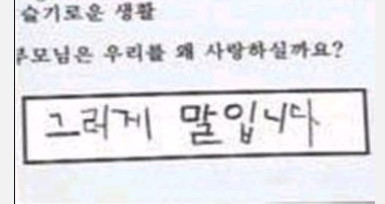 슬기로운 생활
부모님은 우리를 왜 사랑하실까요?
그러게 말입니다